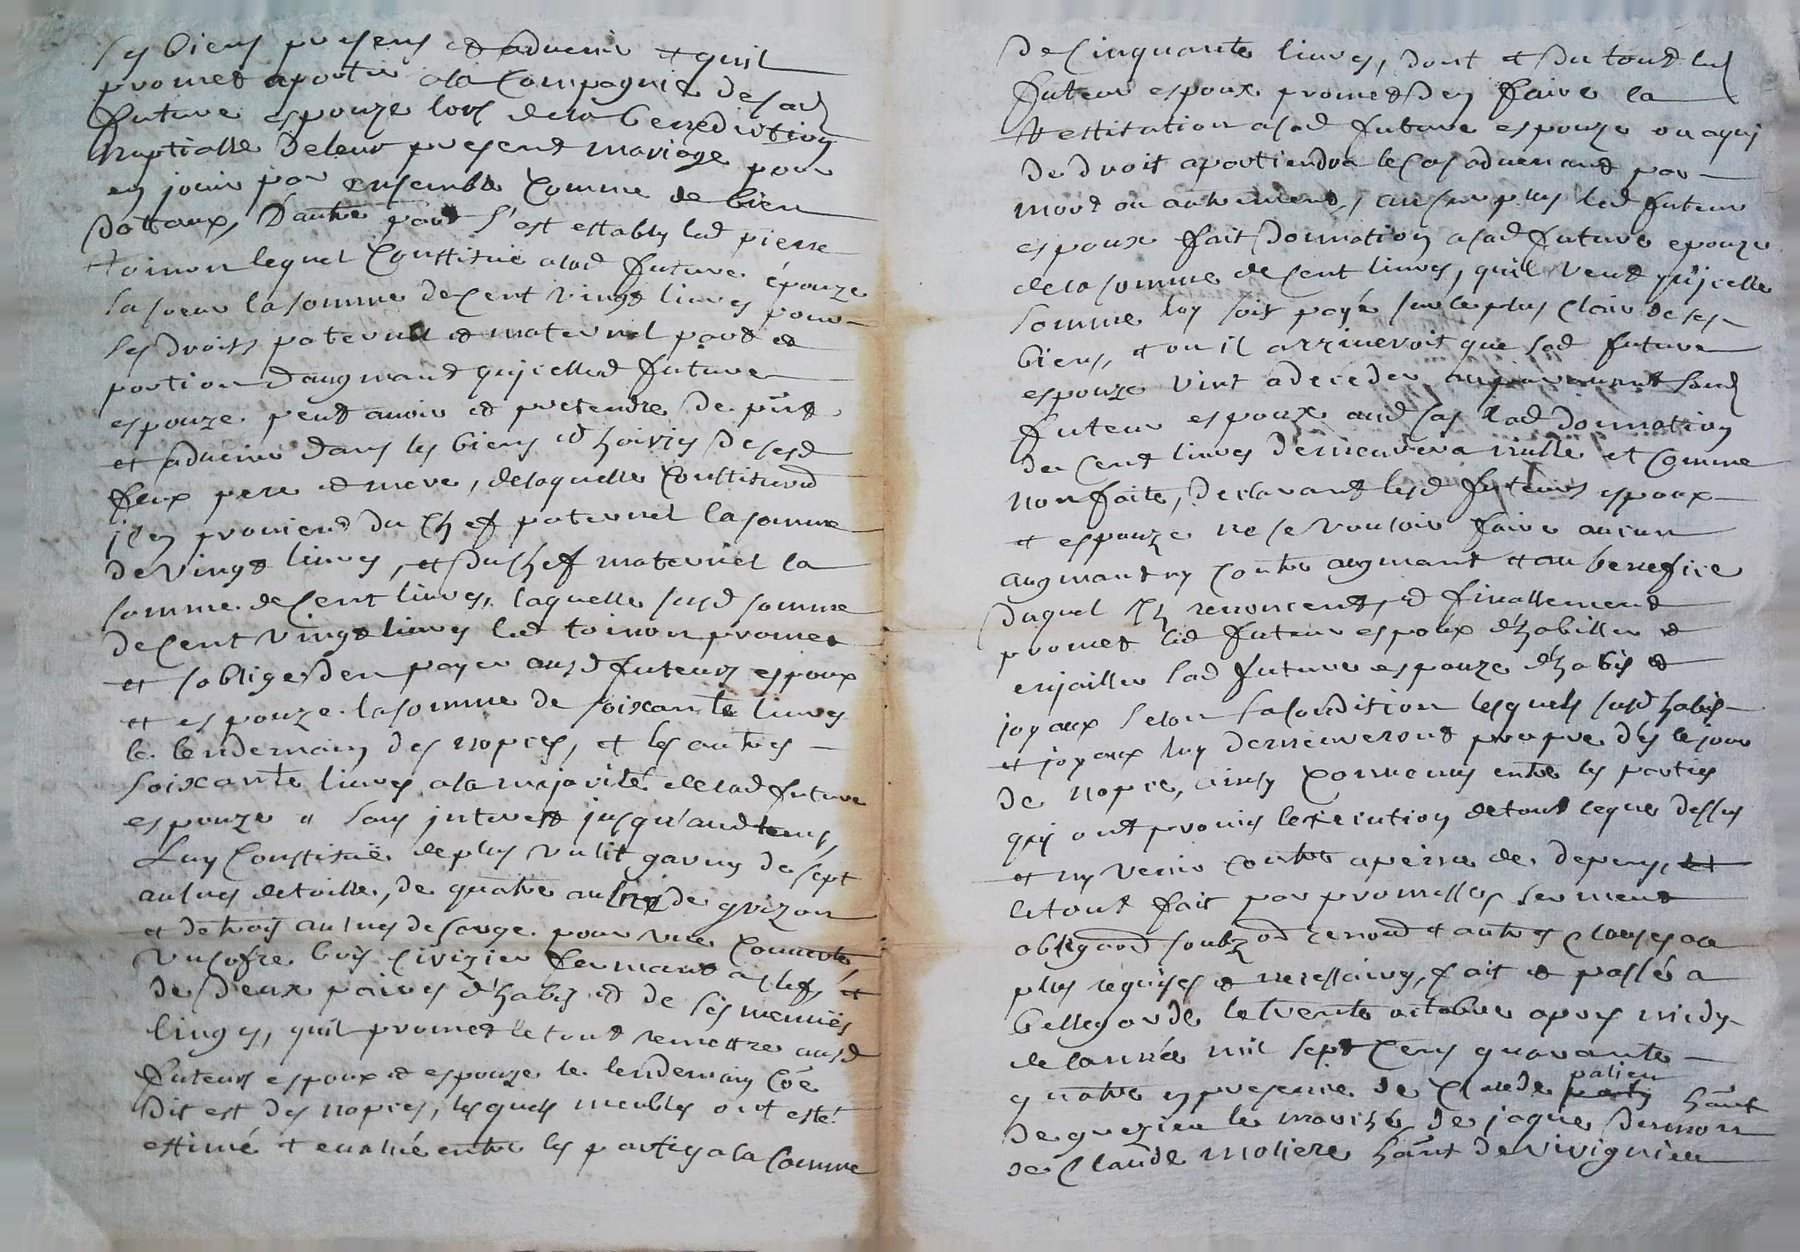 ses biens presens et advenir et quil
promet aportér a la Compagnie de sad
future espouze lors de la benediction
nuptialle de leur present mariage pour
en jouir par ensemble Comme de bien
dottaux, D'autre part s'est estably led pierre
toinon lequel Constituë a lad future épouze
sa soeur la somme de Cent vingt livres pour
ses droits paternel et maternel part et
portion d'augmant qu'icelled future
espouze peut avoir et pretendre de pnt
et advenir dans les biens et hoiries de sesd
feux pere et mere, de laquelle Constituond
il en provient du Chef paternel la somme
de vingt livres, et du chef maternel la
somme de Cent livres, laquelle susd somme
de Cent vingt livres led toinon promet
et soblige den payer ausd futeurs espoux
et espouze la somme de soixante livres
le lendemain des nopces, et les autres
soixante livres a la majorité de lad future
espouze sans interest jusqu'aud tems,
Luy Constituë de plus un lit garny de sept
aulnes de toille, de quatre aulnes de grizon
et de trois aulnes de sarge pour une Couverte
un cofre bois cirizier fermant a clef, et
de deux paires d'habis et de ses menuës
linges, quil promet le tout remettre ausd
futeurs espoux et espouze le lendemain Coe
dit est des nopces, lesquels meubles ont esté
estimé et evalué entre les parties a la somme
de Cinquante livres, dont et du tout led
futeur espoux promet den faire la
restitation a sad future espouze ou a qui
de droit apartiendra le cas advenant par
mort ou autrement, au surplus led futeur
espoux fait donnation a sad future epouze
de la somme de Cent livres, quil veut qu'icelle
somme luy soit payé sur le plus Clair de ses
biens, et ou il arriveroit que sad future
espouze vint a deceder auparavant sond
futeur espoux aud cas lad donnation
de Cent livres demeurera nulle et Comme
non faite, declarant lesd futeurs espoux
et espouze ne se vouloir faire aucun
augmant ny contre augmant et au benefice
duquel ils renoncent, et finallement
promet led futeur espoux d'habiller et
enjailler sad future espouze d'habis et
joyaux selon sa condition lesquels susd habis
et joyaux luy demeureront propre des le jour
de nopce, ainsy Convenus entre les parties
qui ont promis l'execution de tout ce que dessus
et ny venir contre a peine de depens, et
le tout fait par promesses serment
obligaond soubz on renond et autres clauses au
plus requises et necessaires, fait et passé a
bellegarde le trente octobre apres midy
de l'année mil sept Cens quarante
quatre en presence de Claude palien hant
de guezieu le marizé de jaque dumon
de Claude moliere hant de virignieu